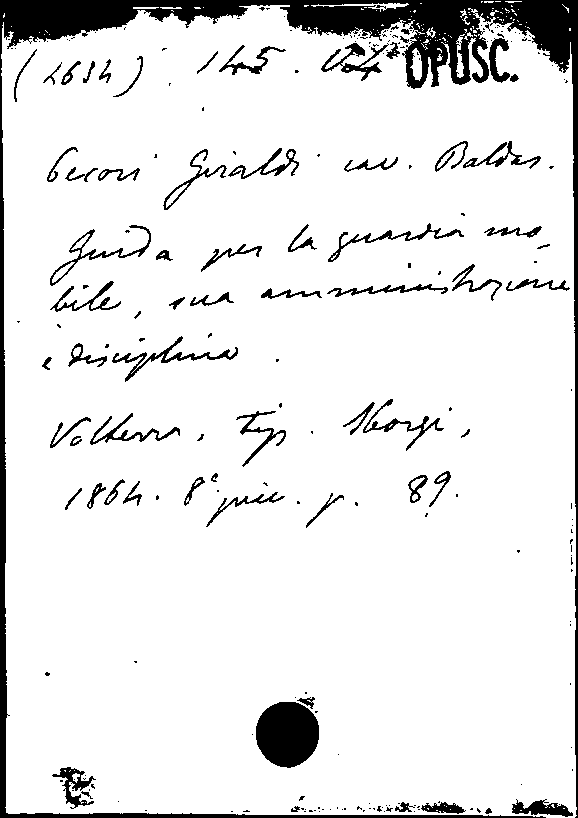 (2634) 145. V4 OPUSC.
Cecori Giraldi cav. Baldas.
Guida per la guardia mo-
bile, sua amministrazione
e disciplina.
Volterra, tip. Sborgi,
1864. 8° picc. p. 89.